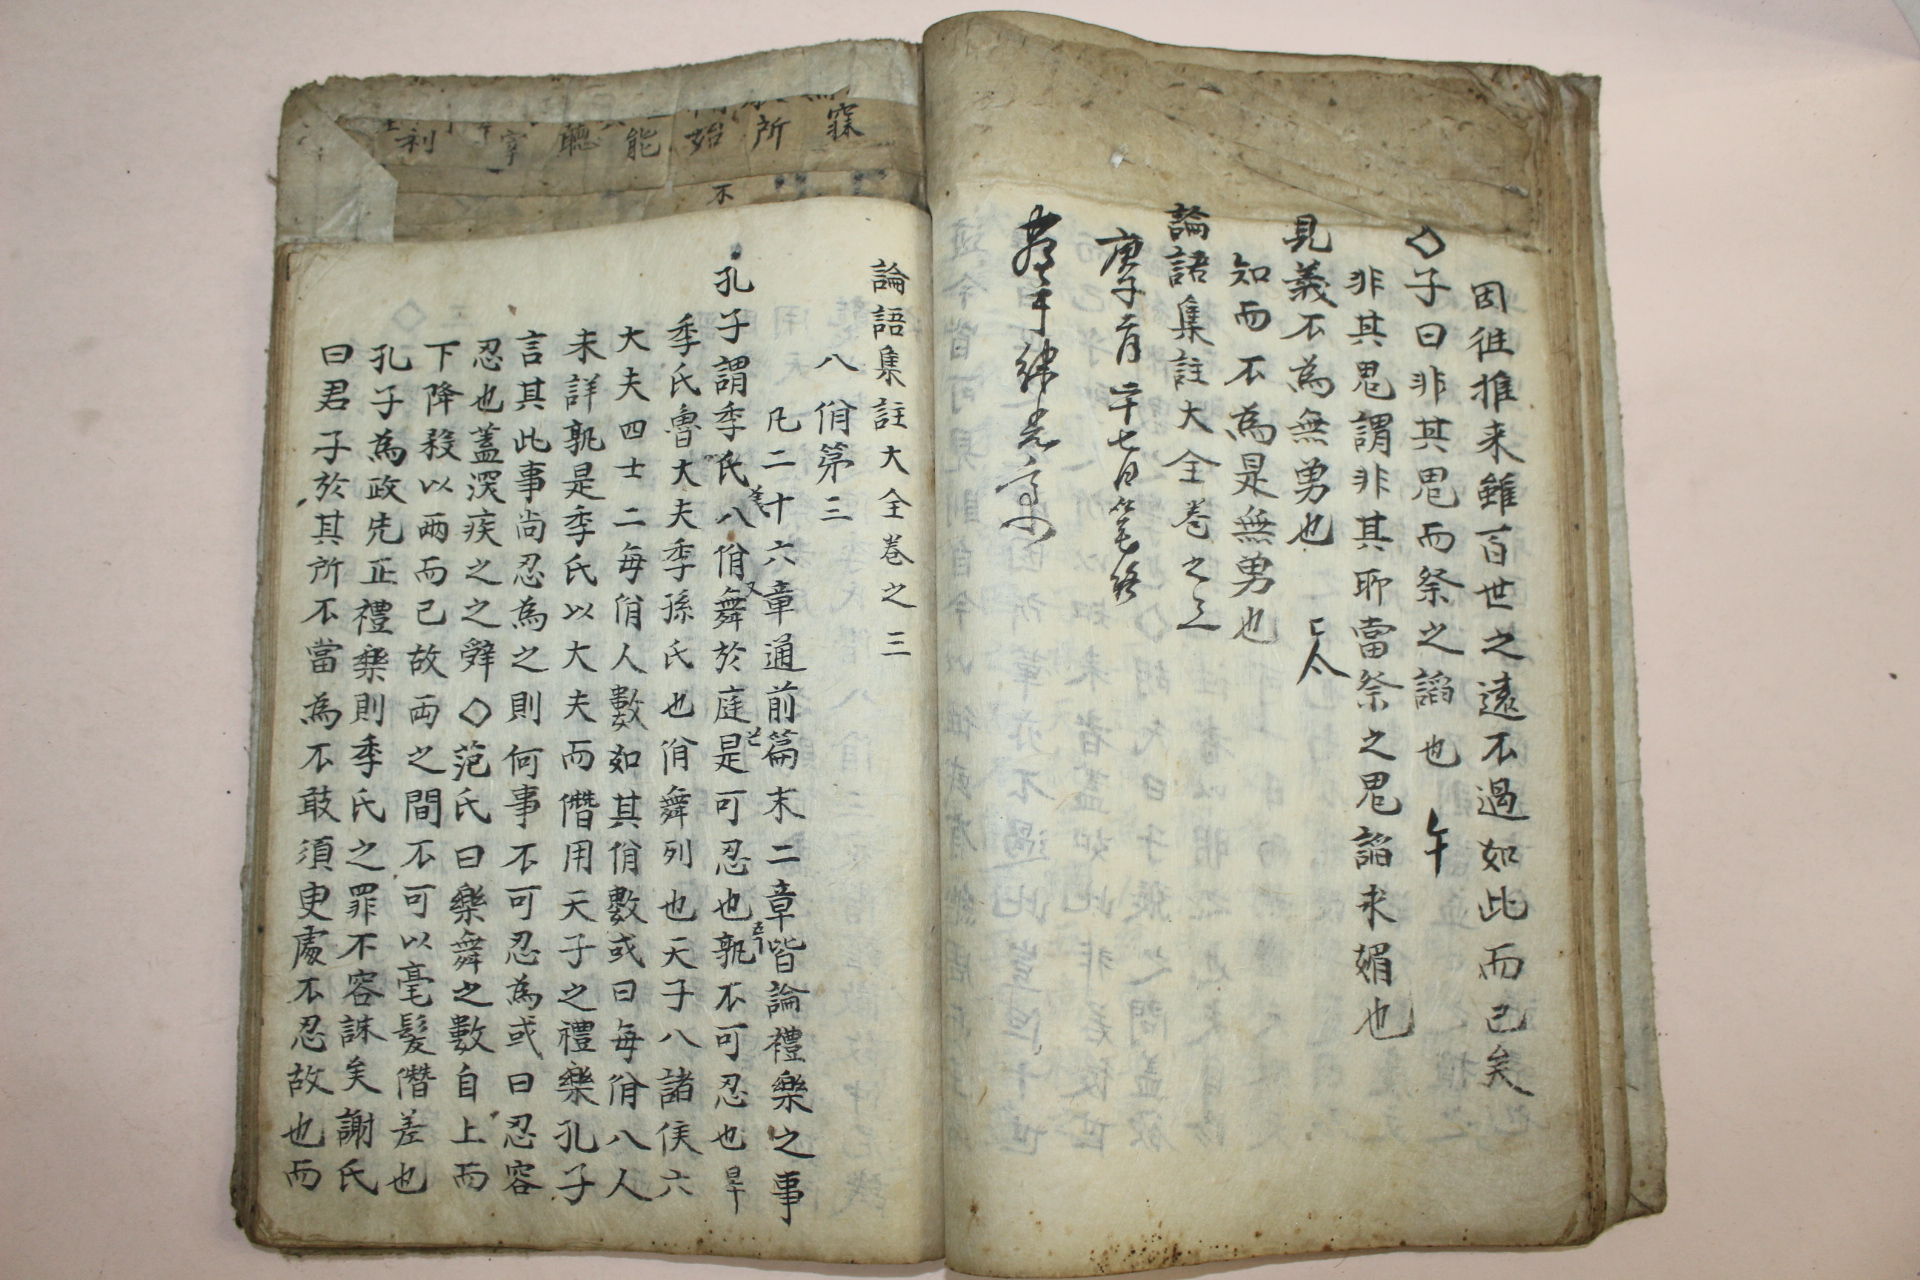 因往推来雖百世之遠不過如此而已矣
◇子曰非其鬼而祭之謟也 午
非其鬼謂非其所當祭之鬼謟求媚也
見義不為無勇也
知而不為是無勇也
論語集註大全卷之二
庚子二月二十七日筆
論語集註大全卷之三
八佾第三
凡二十六章通前篇末二章皆論禮樂之事
孔子謂季氏八佾舞於庭是可忍也孰不可忍也
季氏魯大夫季孫氏也佾舞列也天子八諸侯六
大夫四士二每佾人數如其佾數或曰每佾八人
未詳孰是季氏以大夫而僭用天子之禮樂孔子
言其此事尚忍為之則何事不可忍為或曰忍容
忍也蓋深疾之之辤◇范氏曰樂舞之數自上而
下降殺以兩而已故兩之間不可以毫髮僭差也
孔子為政先正禮樂則季氏之罪不容誅矣謝氏
曰君子於其所不當為不敢須臾處不忍故也而
窺
所
始
能
聽
寧
利
不